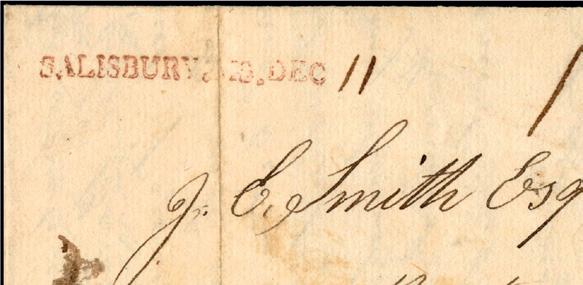 SALISBURY. DEC 11
J. E. Smith Esq